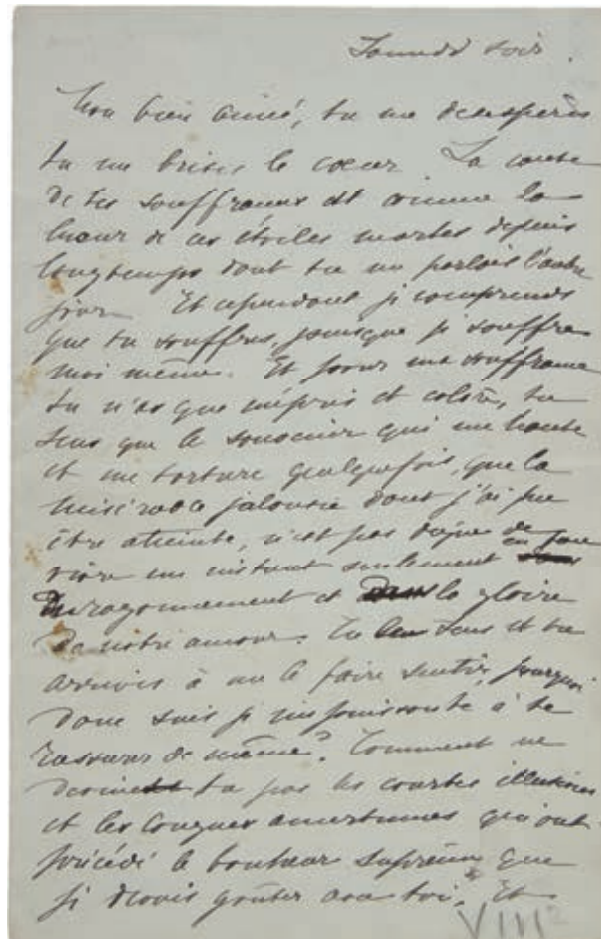 Samedi soir.
Mon bien aimé, tu me désespères
tu me brises le coeur La cause
de tes souffrances est comme la
lueur de ces étoiles mortes depuis
longtemps dont tu me parlais l'autre
jour Et cependant je comprends
que tu souffres, puisque je souffre
moi même. Et pour ma souffrance
tu n'as que mépris et colère, tu
sens que le souvenir qui me hante
et me torture quelquefois, que la
misérable jalousie dont j'ai pu
être atteinte, n'est pas digne de
vivre un instant seulement en face
du rayonnement et la gloire
de notre amour. Tu sens et tu
arrives à me le faire sentir, pourquoi
donc suis je impuissante à te
rassurer de même? Comment ne
devines tu pas les courtes illusions
et les longues amertumes qui ont
précédé le bonheur suprême que
je devais goûter avec toi. Et
VIII